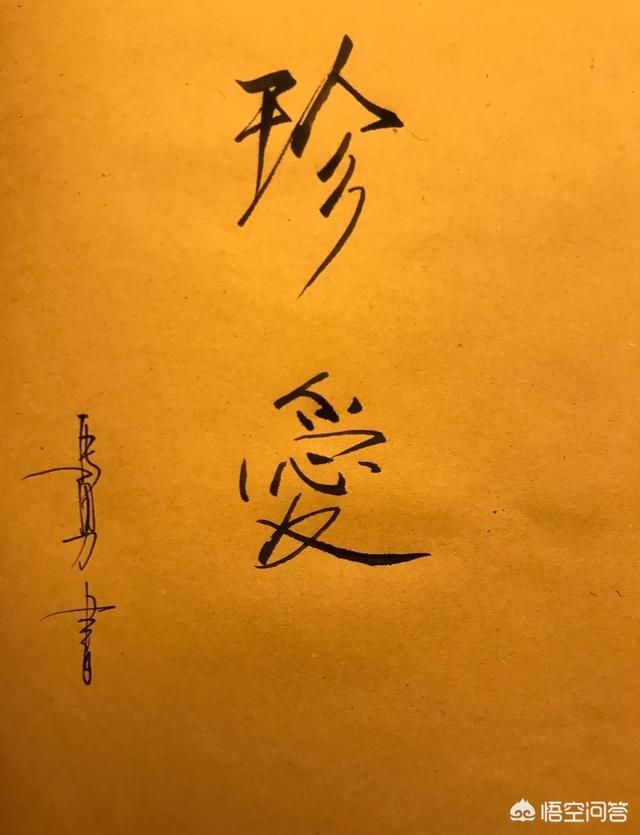 珍
愛
書
悟空问答